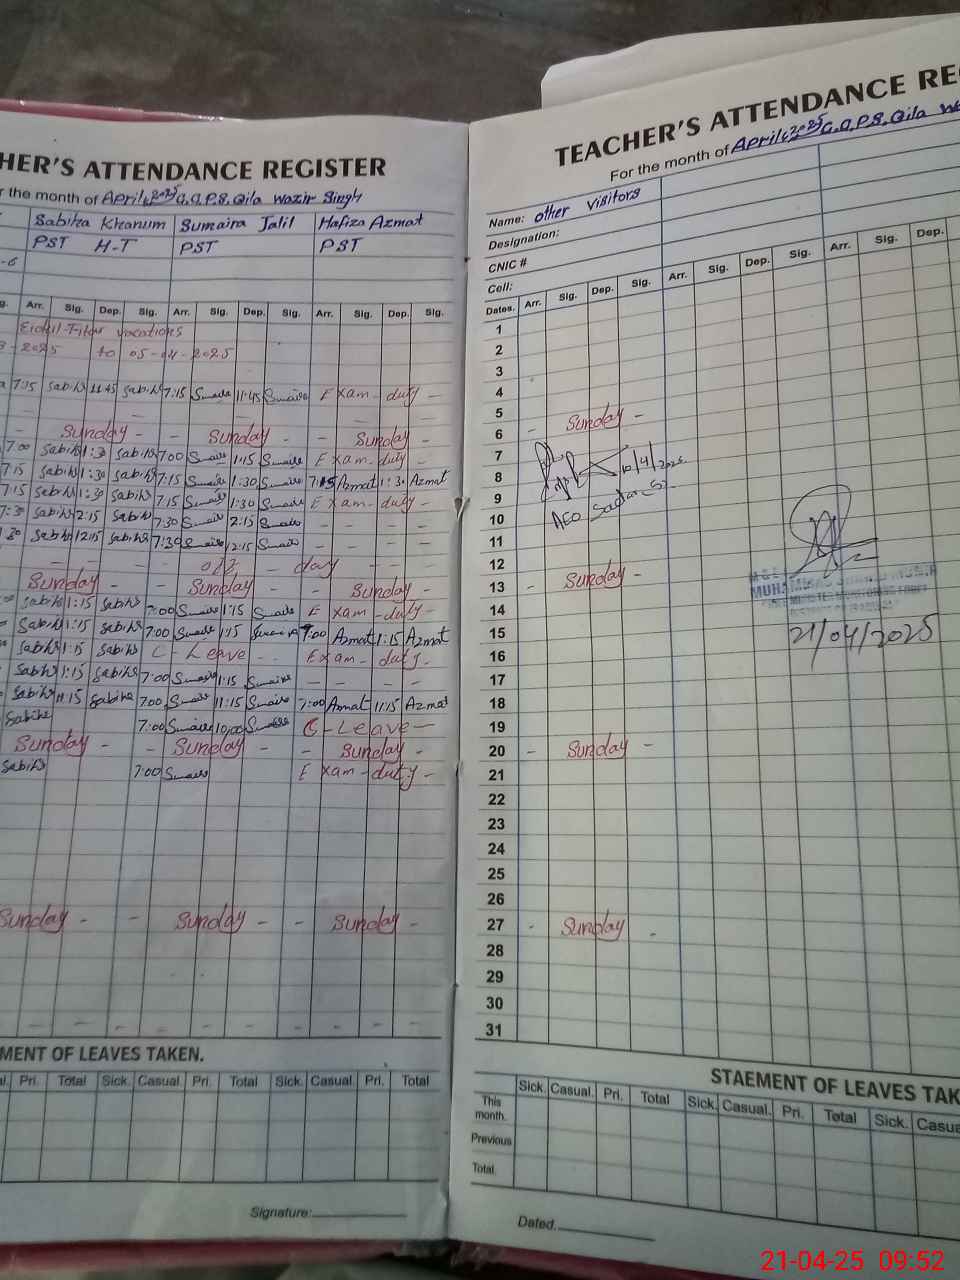 HER'S ATTENDANCE REGISTER
r the month of April, 2025 G.G.P.S. Qila Wazir Singh
Sabika Khanum Sumaira Jalil Hafiza Azmat
PST H-T PST PST
-6
g. Arr. Sig. Dep. Sig. Arr. Sig. Dep. Sig. Arr. Sig. Dep. Sig.
Eidul-Fitar vacations
3-2025 to 05-04-2025
7:15 Sabika 11:45 Sabika 7:15 Sumaira 11:45 Sumaira Exam-duty -
Sunday - - Sunday - - Sunday -
7:00 Sabika 1:30 Sabika 7:00 Sumaira 1:15 Sumaira Exam-duty -
7:15 Sabika 1:30 Sabika 7:15 Sumaira 1:30 Sumaira 7:15 Azmat 1:30 Azmat
7:15 Sabika 1:30 Sabika 7:15 Sumaira 1:30 Sumaira Exam-duty -
7:30 Sabika 2:15 Sabika 7:30 Sumaira 2:15 Sumaira - - - -
:30 Sabika 12:15 Sabika 7:30 Sumaira 12:15 Sumaira - - - -
off - day - -
Sunday - - Sunday - - Sunday -
Sabika 1:15 Sabika 7:00 Sumaira 1:15 Sumaira Exam-duty -
Sabika 1:15 Sabika 7:00 Sumaira 1:15 Sumaira 7:00 Azmat 1:15 Azmat
Sabika 1:15 Sabika C-Leave - - Exam-duty -
Sabika 1:15 Sabika 7:00 Sumaira 1:15 Sumaira - - - -
Sabika 11:15 Sabika 7:00 Sumaira 11:15 Sumaira 7:00 Azmat 11:15 Azmat
Sabika 7:00 Sumaira 10:00 Sumaira C-Leave -
Sunday - - Sunday - - Sunday -
Sabika 7:00 Sumaira Exam-duty -
Sunday - - Sunday - - Sunday -
MENT OF LEAVES TAKEN.
al. Pri. Total Sick. Casual. Pri. Total Sick. Casual. Pri. Total
Signature:
TEACHER'S ATTENDANCE RE
For the month of April, 2025 G.G.P.S. Qila Wa
Name: other visitors
Designation:
CNIC #
Cell:
Dates. Arr. Sig. Dep. Sig. Arr. Sig. Dep. Sig. Arr. Sig. Dep.
1
2
3
4
5
6 - Sunday -
7
8 10/4/2025
9
10 AEO
11
12
13 - Sunday -
14
15 21/04/2025
16
17
18
19
20 - Sunday -
21
22
23
24
25
26
27 - Sunday -
28
29
30
31
STAEMENT OF LEAVES TAK
Sick. Casual. Pri. Total Sick. Casual. Pri. Total Sick. Casua
This month.
Previous
Total.
Dated.
21-04-25 09:52